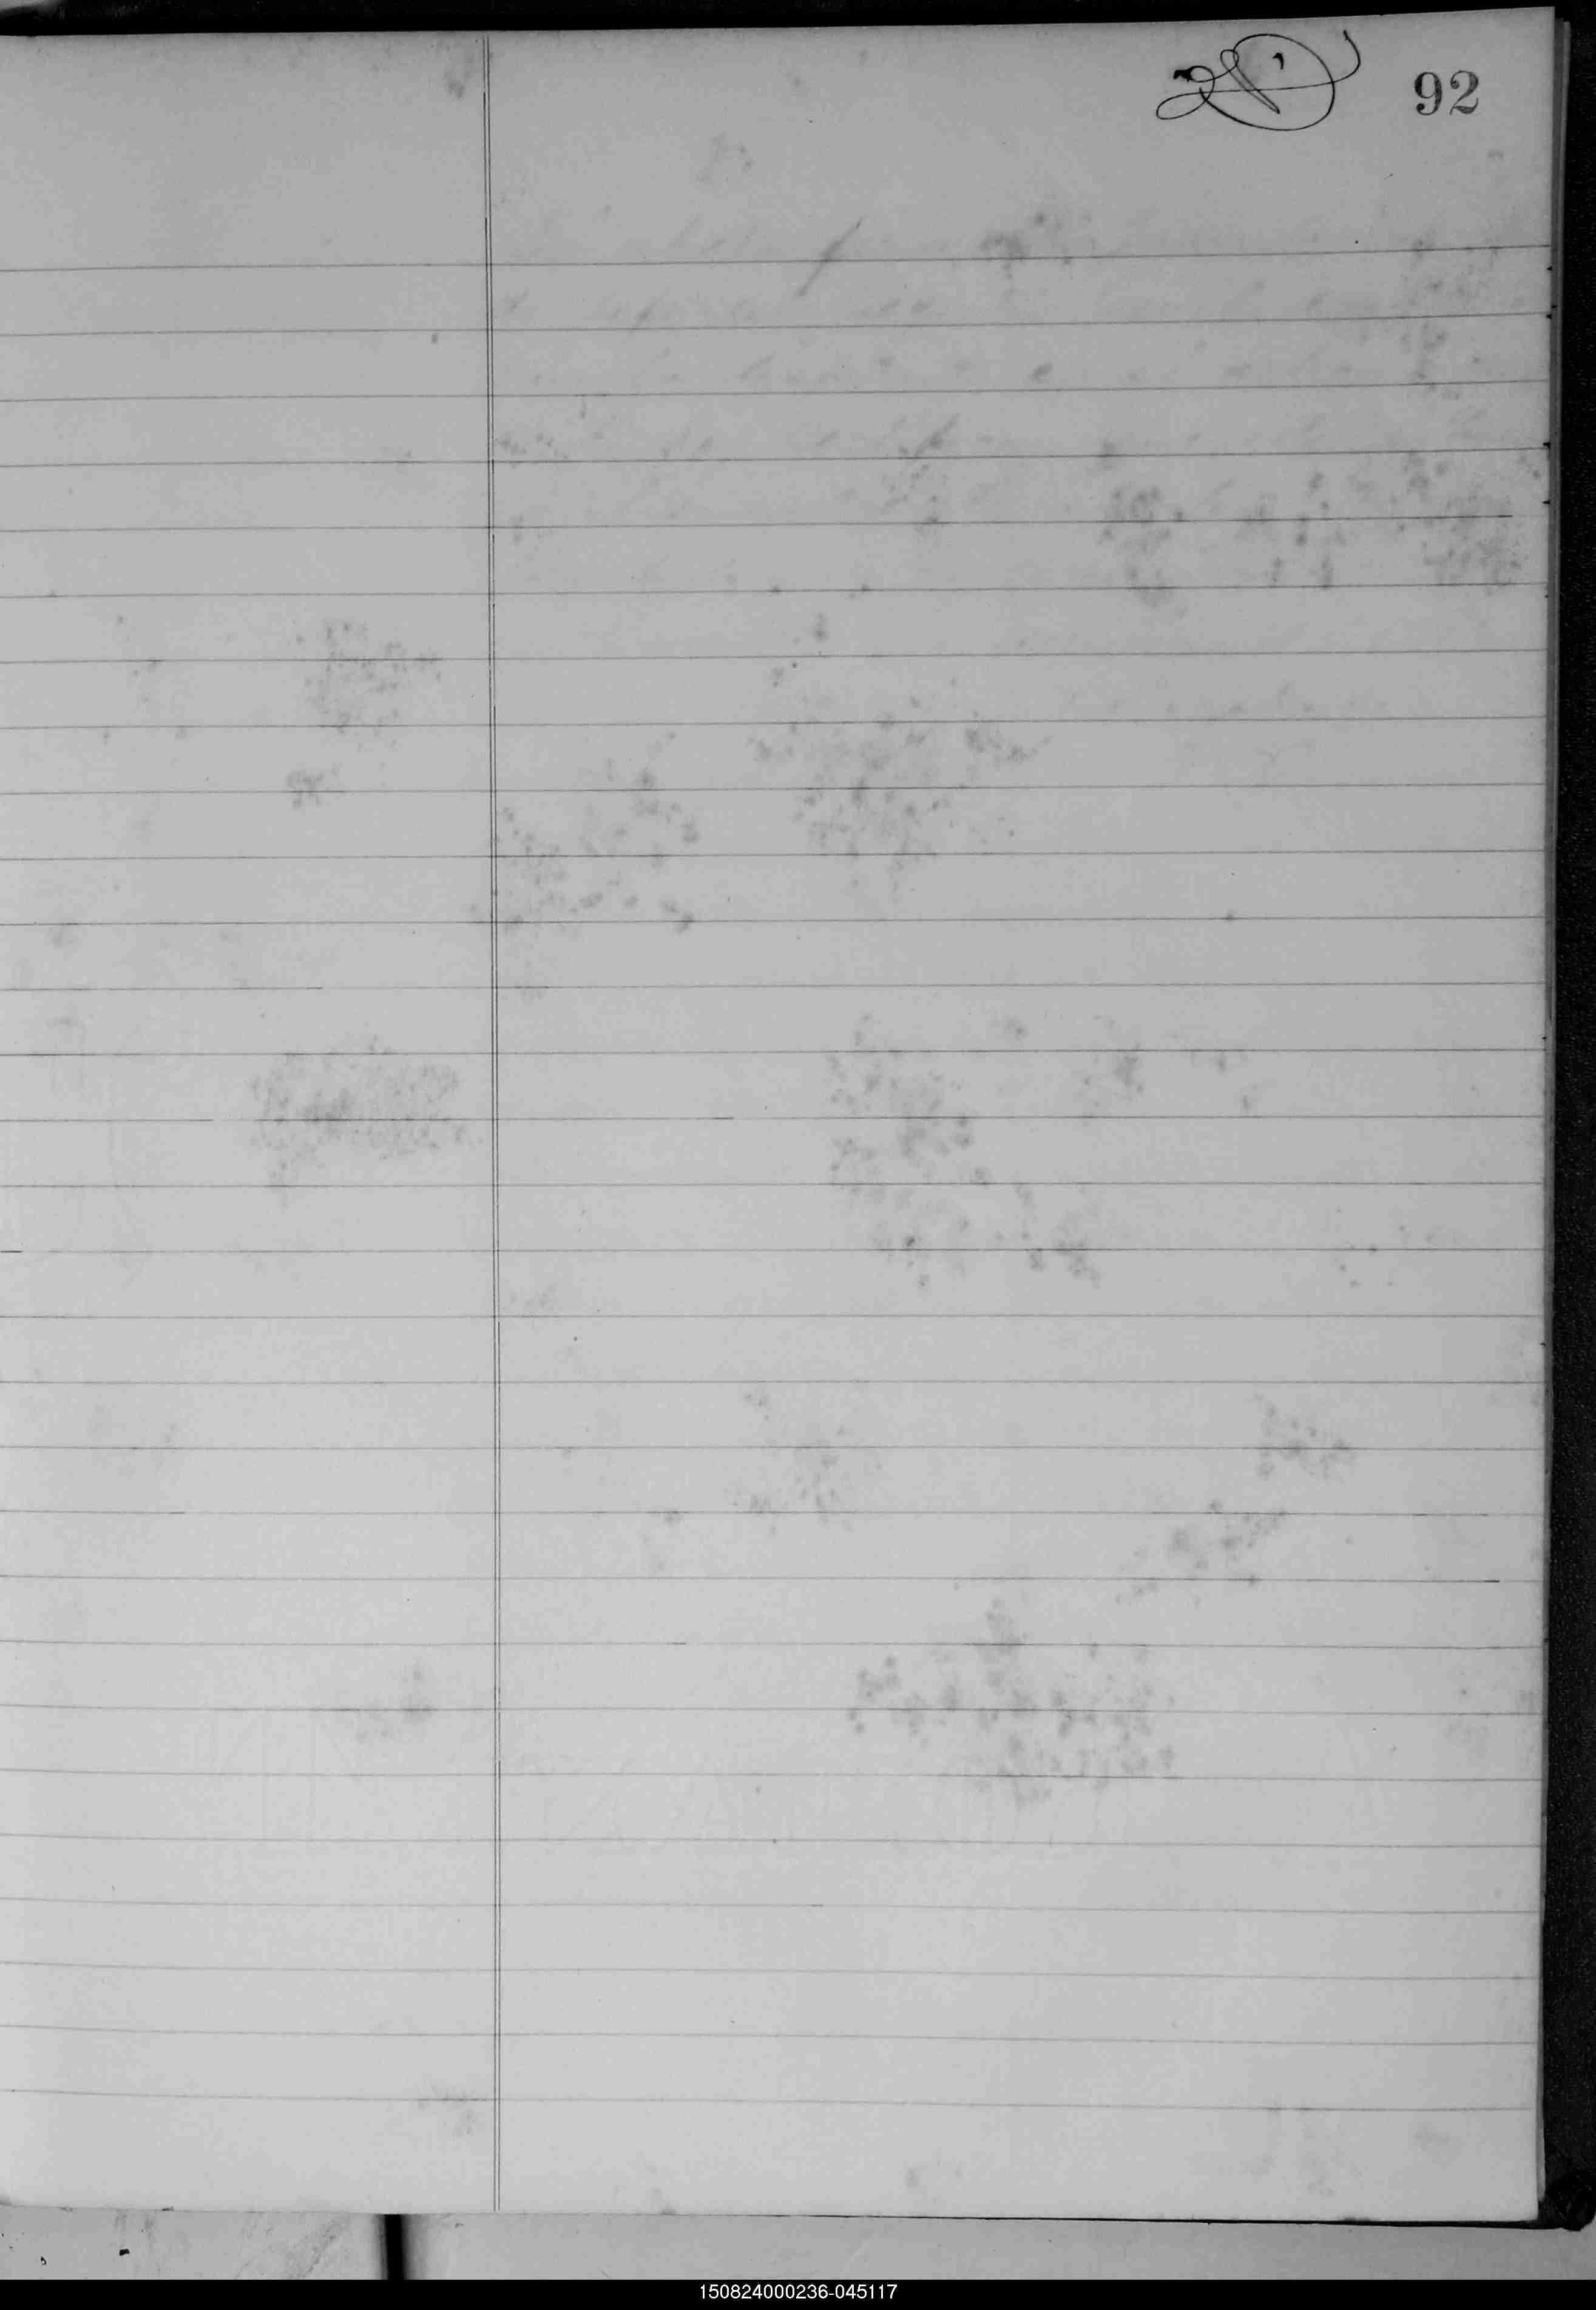 92
150824000236-045117